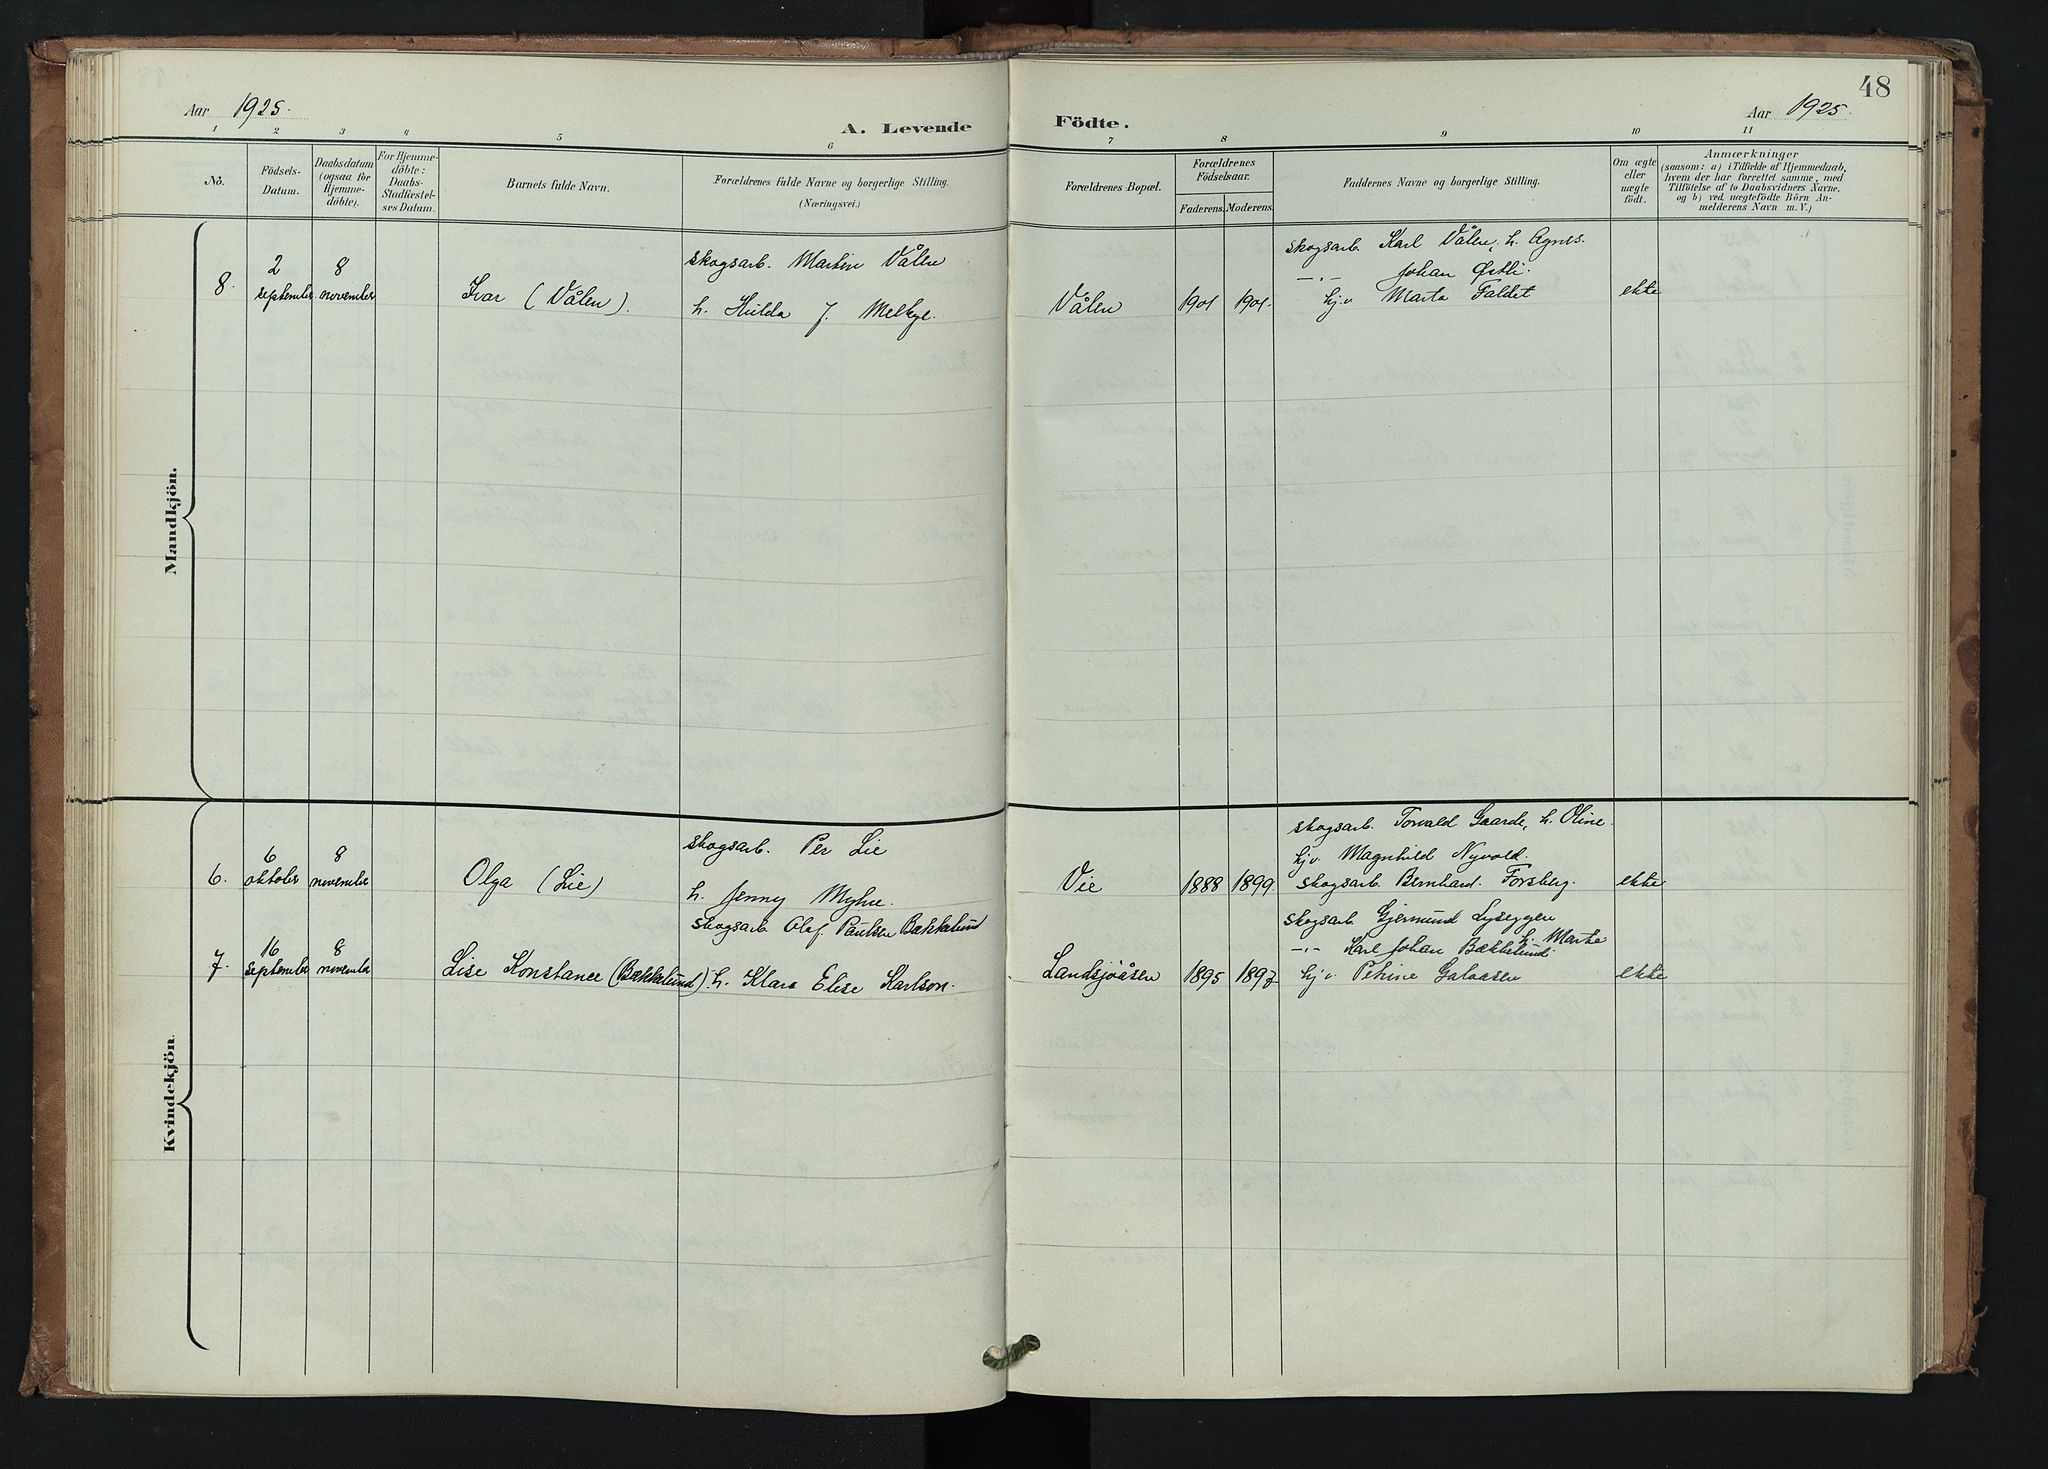 48
Aar 1925.
A. Levende Födte.
Aar 1925.
1 2 3 4 5 6 7 8 9 10 11
No.
Födsels-
Datum.
Daabsdatum
(ogsaa for
Hjemme-
döbte).
For Hjemme-
döbte:
Daabs-
Stadfæstel-
ses Datum.
Barnets fulde Navn.
Forældrenes fulde Navne og borgerlige Stilling.
(Næringsvei.)
Forældrenes Bopæl.
Forældrenes
Födselsaar.
Faderens. Moderens.
Faddernes Navne og borgerlige Stilling.
Om ægte
eller
uægte
födt.
Anmærkninger
(saasom: a) i Tilfælde af Hjemmedaab,
hvem der har forrettet samme, med
Tilföielse af to Daabsvidners Navne,
og b) ved uægtefödte Börn An-
melderens Navn m. V.)
Mandkjön.
8.
2
september
8
november
Ivar (Vålen).
skogsarb. Martin Vålen
h. Hulda J. Melbye.
Vålen
1901
1901.
skogsarb. Karl Vålen, h. Agnes.
—"— Johan Østli.
hj.v Marta Faldet
ekte
Kvindekjön.
6.
6
oktober
8
november
Olga (Lie)
skogsarb. Per Lie
h. Jenny Myhre.
Vie
1888
1899
skogsarb. Torvald Gaarde, h. Oline.
hj.v. Magnhild Nyvold.
skogsarb. Bernhard Forsberg.
ekte
7.
16
september
8
november
Lise Konstance (Bækkelund).
skogsarb Olaf Paulsen Bækkelund
h. Klara Elise Karlson.
Landsjøåsen
1895
1897
skogsarb Gjermund Lyseggen
h. Marte
—"— Karl Johan Bækkelund
hj v. Petrine Galaasen
ekte